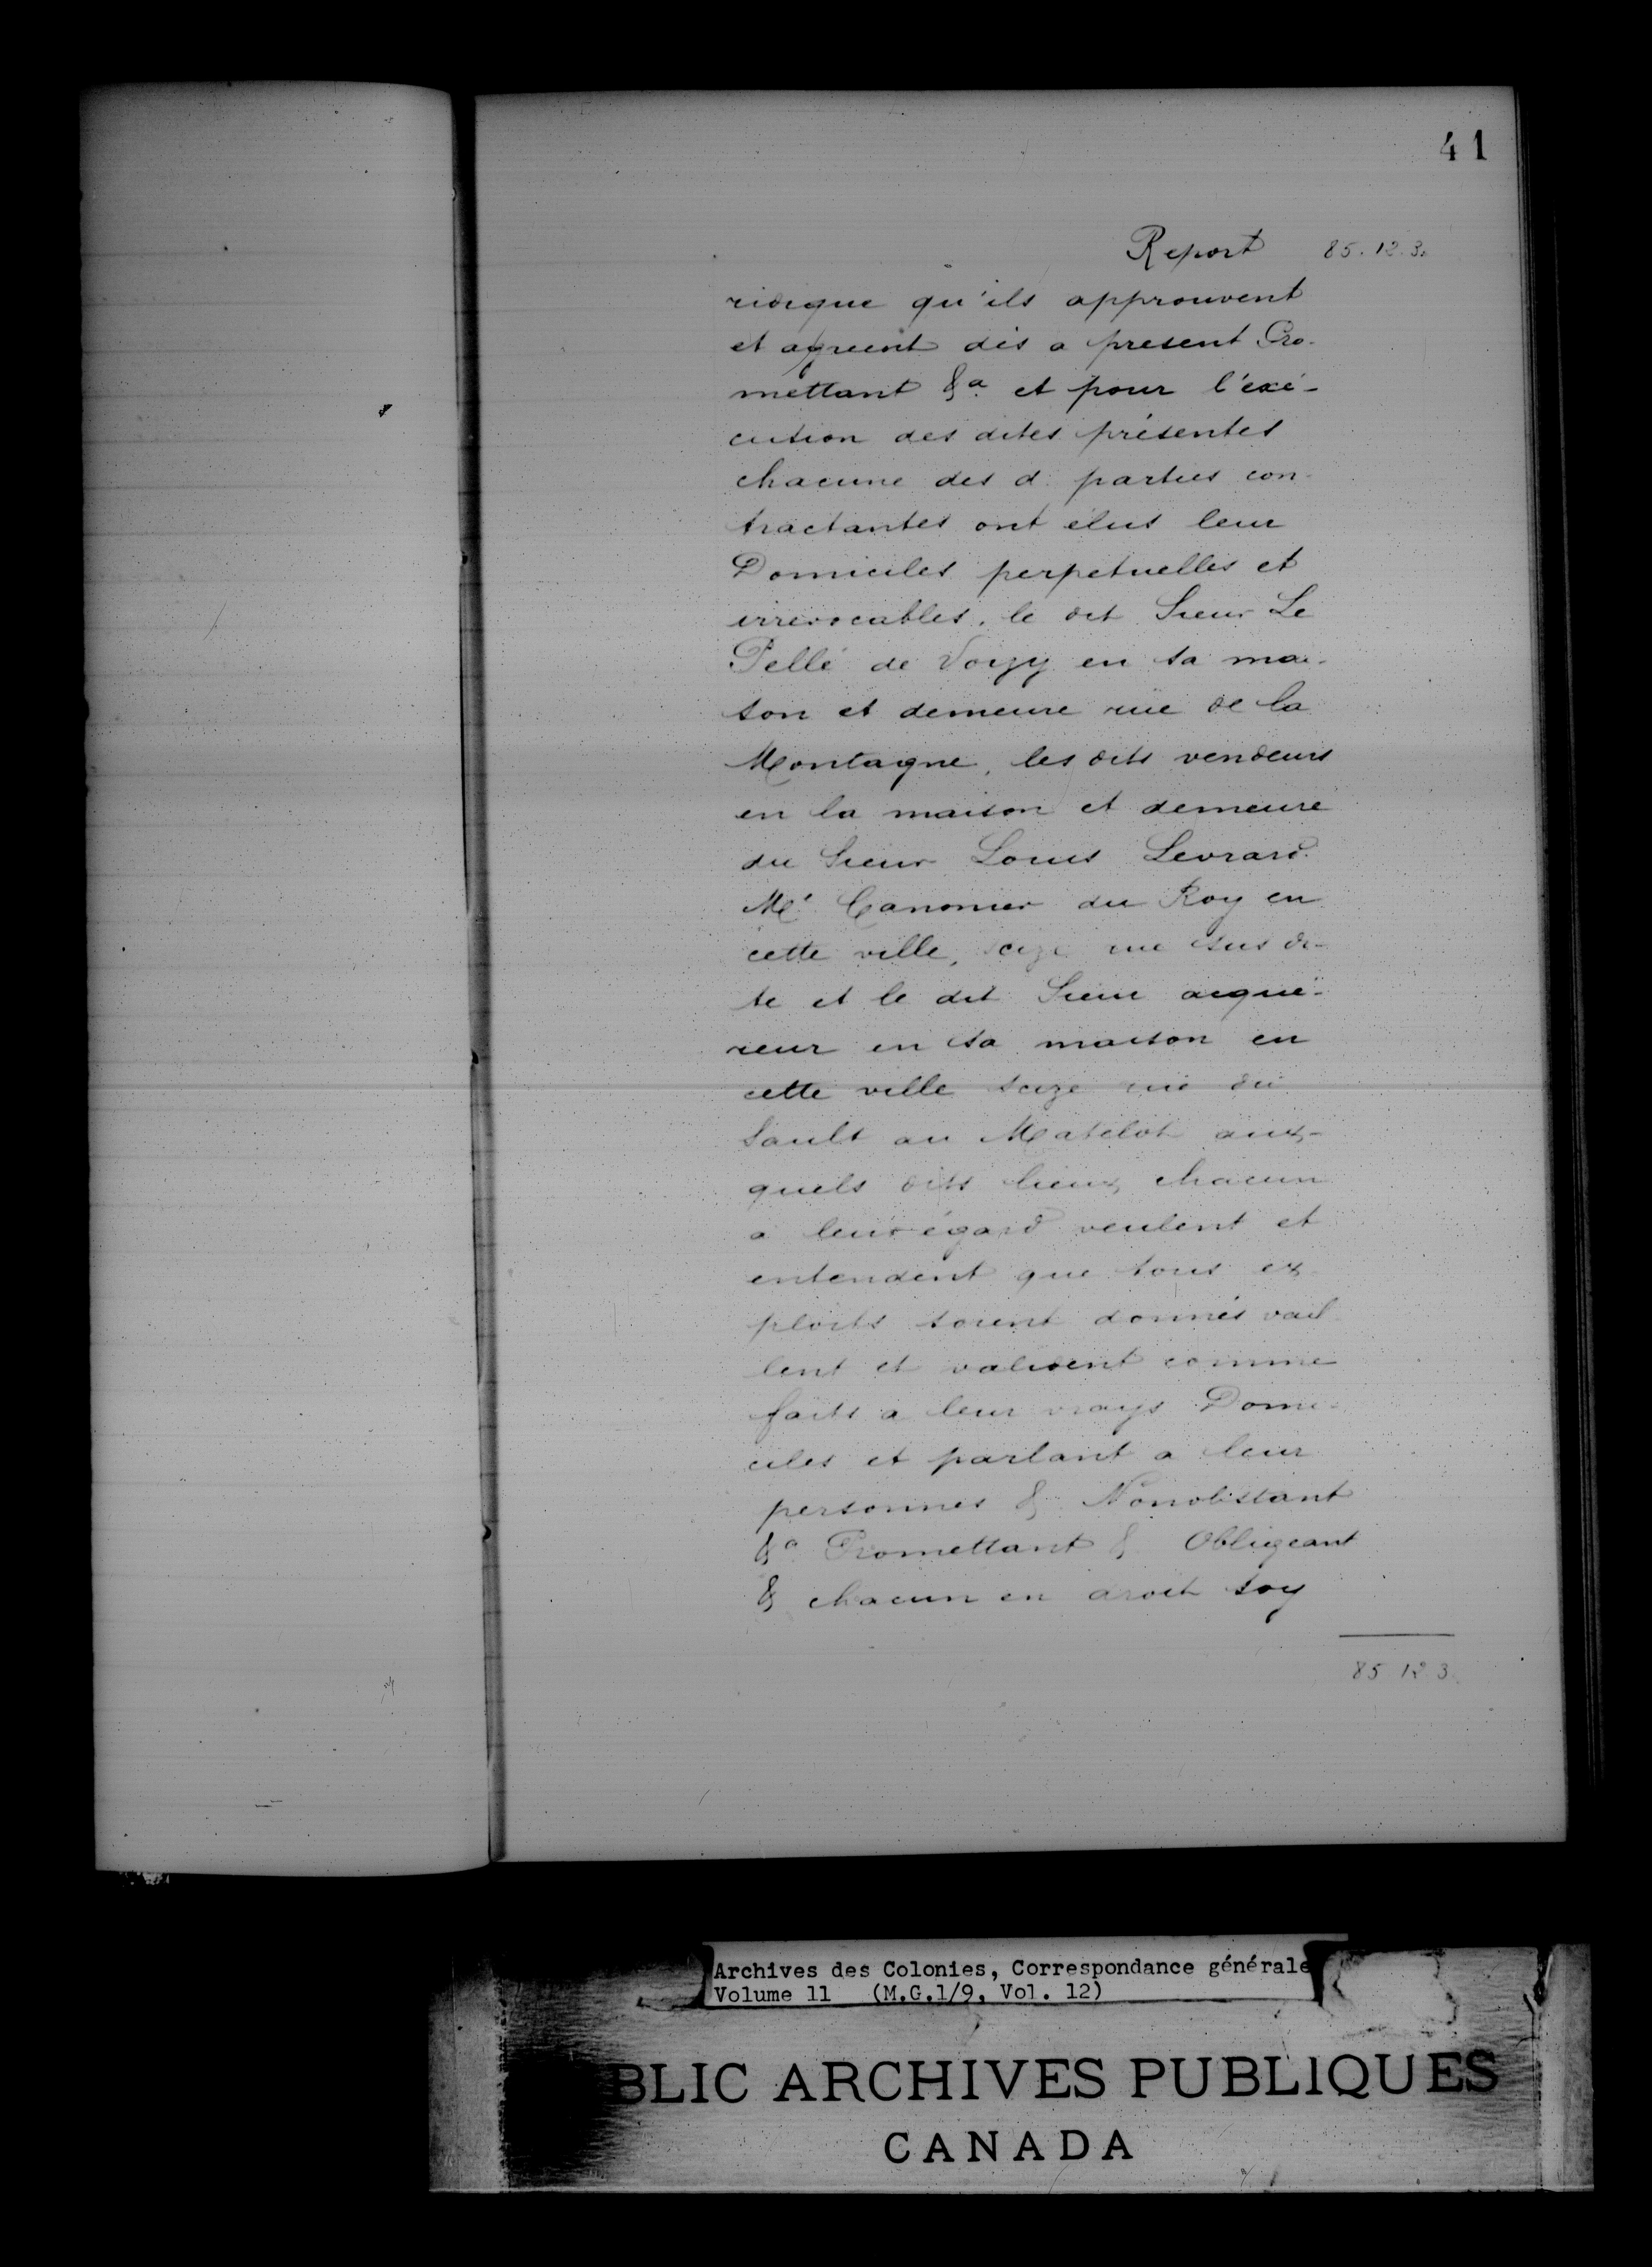 41
Report 85.12.3.
ridique qu'ils approuvent
et agréent dès a present Pro-
mettant &a. et pour l'exé-
cution des dites présentes
chacune des d. parties con-
tractantes ont élus leur
Domiciles perpetuelles et
irrevocables, le dit Sieur Le
Pellé de Voisy en sa mai-
son et demeure rue de la
Montagne, les dits vendeurs
en la maison et demeure
du Sieur Louis Levrard
Me. Canonier du Roy en
cette ville, seize rue sus di-
te et le dit Sieur acqué-
reur en sa maison en
cette ville seize rue du
Sault au Matelot aux-
quels dits lieux, chacun
a leur égard veulent et
entendent que tous ex-
ploits soient donnés vail
lent et valident comme
faits a leur vrays Domi-
ciles et parlant a leur
personnes & Nonobstant
&a Promettant & Obligeant
& chacun en droit soy
85 12 3.
Archives des Colonies, Correspondance générale
Volume 11 (M.G.1/9, Vol. 12)
BLIC ARCHIVES PUBLIQUES
CANADA